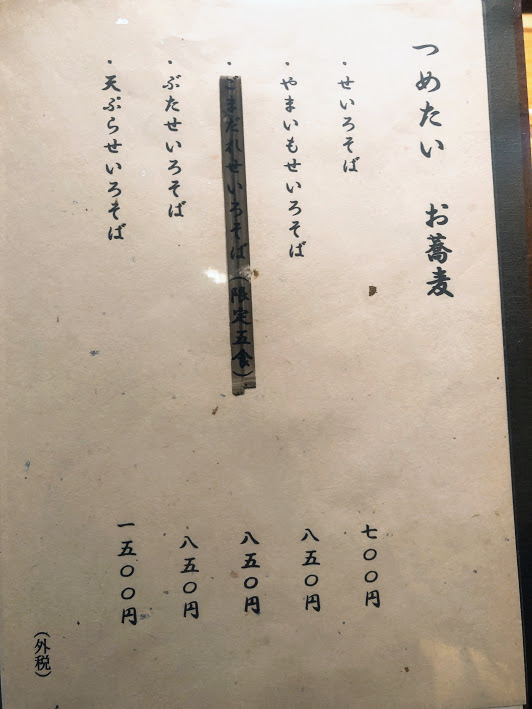 つめたい お蕎麦
・せいろそば
七〇〇円
・やまいもせいろそば
八五〇円
・ごまだれせいろそば（限定五食）
八五〇円
・ぶたせいろそば
八五〇円
・天ぷらせいろそば
一五〇〇円
（外税）